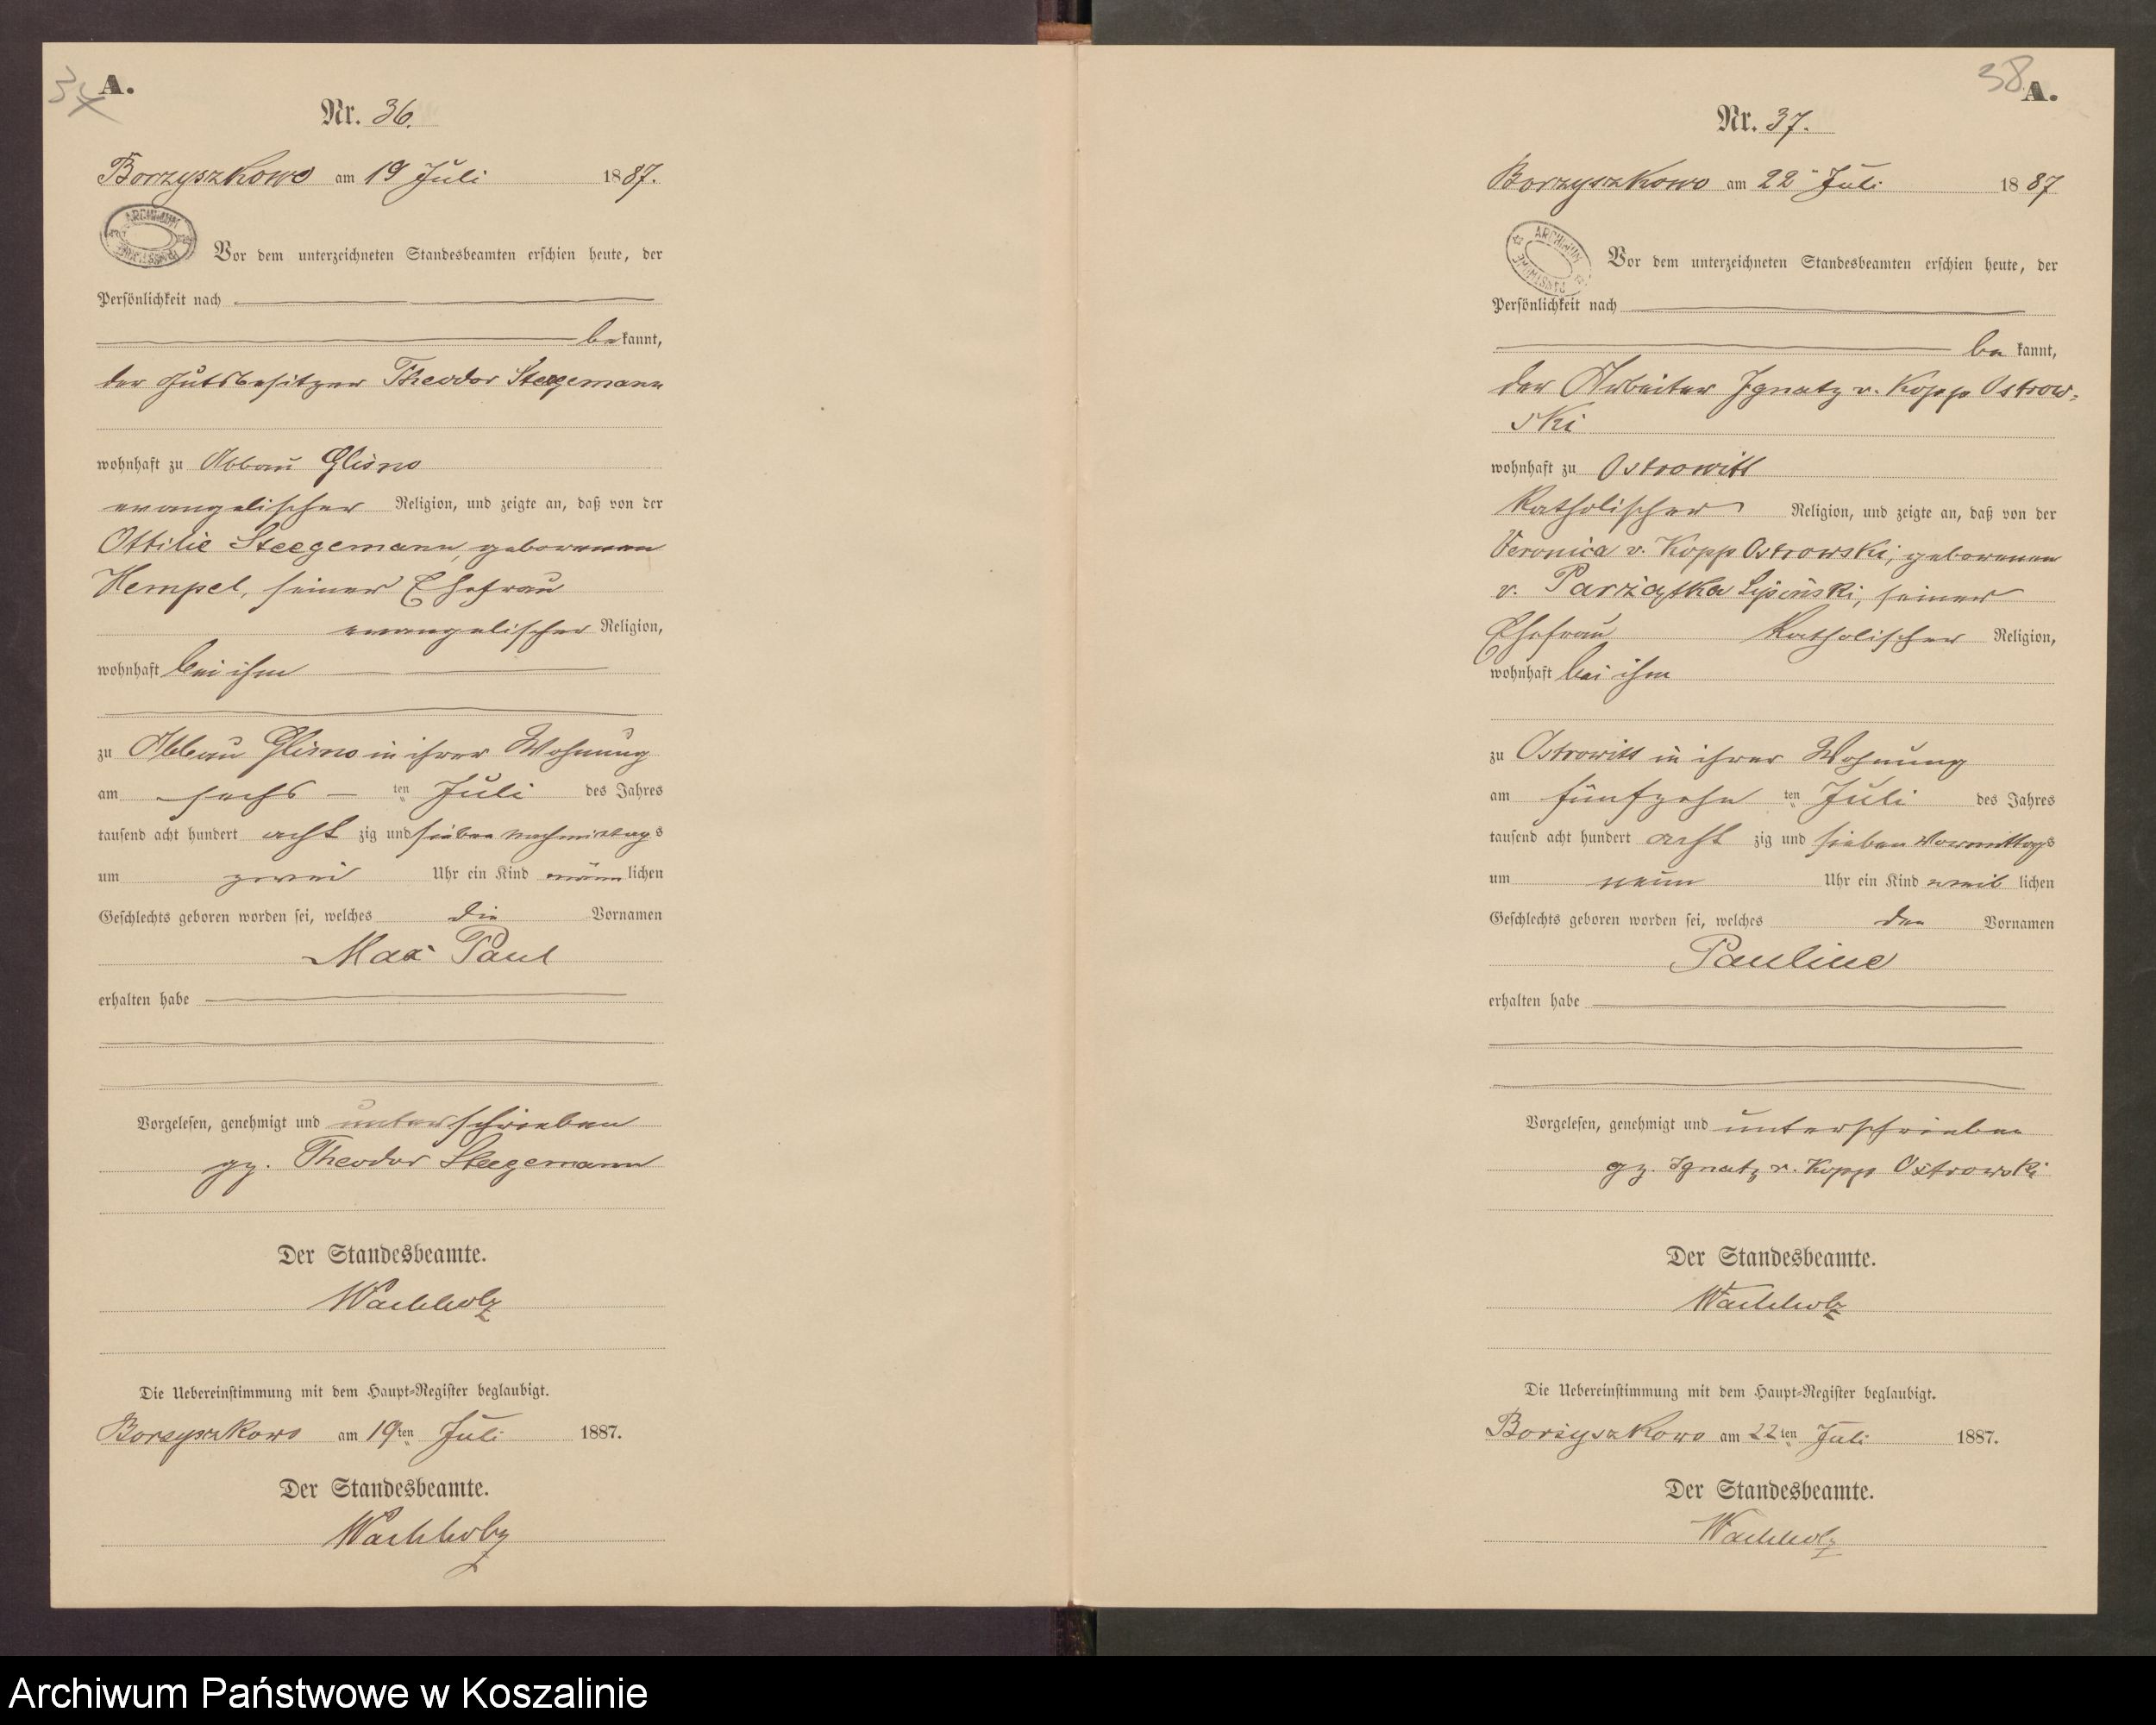 A.
Nr. 36.
Borzyszkowo am 19 Juli 1887.
ARCHIWUM
Vor dem unterzeichneten Standesbeamten erschien heute, der
Persönlichkeit nach
bekannt,
der Gutsbesitzer Theodor Steegemann
wohnhaft zu Abbau Glisno
evangelischer Religion, und zeigte an, daß von der
Ottilie Steegemann, geborenen
Hempel, seiner Ehefrau
evangelischer Religion,
wohnhaft bei ihm
zu Abbau Glisno in ihrer Wohnung
am sechs ten Juli des Jahres
tausend acht hundert acht zig und sieben Nachmittags
um zwei Uhr ein Kind männlichen
Geschlechts geboren worden sei, welches die Vornamen
Max Paul
erhalten habe
Vorgelesen, genehmigt und unterschrieben
gz. Theodor Steegemann
Der Standesbeamte.
Wachholz
Die Uebereinstimmung mit dem Haupt-Register beglaubigt.
Borzyszkowo am 19ten Juli 1887.
Der Standesbeamte.
Wachholz
38
A.
Nr. 37.
Borzyszkowo am 22 Juli 1887
ARCHIWUM
Vor dem unterzeichneten Standesbeamten erschien heute, der
Persönlichkeit nach
bekannt,
der Arbeiter Ignatz v. Kopp Ostrow-
ski
wohnhaft zu Ostrowitt
katholischer Religion, und zeigte an, daß von der
Veronica v. Kopp Ostrowski, geborenen
v. Parziątka Lipiński, seiner
Ehefrau katholischer Religion,
wohnhaft bei ihm
zu Ostrowitt in ihrer Wohnung
am fünfzehn ten Juli des Jahres
tausend acht hundert acht zig und sieben Vormittags
um neun Uhr ein Kind weib lichen
Geschlechts geboren worden sei, welches den Vornamen
Pauline
erhalten habe
Vorgelesen, genehmigt und unterschrieben
gz. Ignatz v. Kopp Ostrowski
Der Standesbeamte.
Wachholz
Die Uebereinstimmung mit dem Haupt-Register beglaubigt.
Borzyszkowo am 22ten Juli 1887.
Der Standesbeamte.
Wachholz
Archiwum Państwowe w Koszalinie